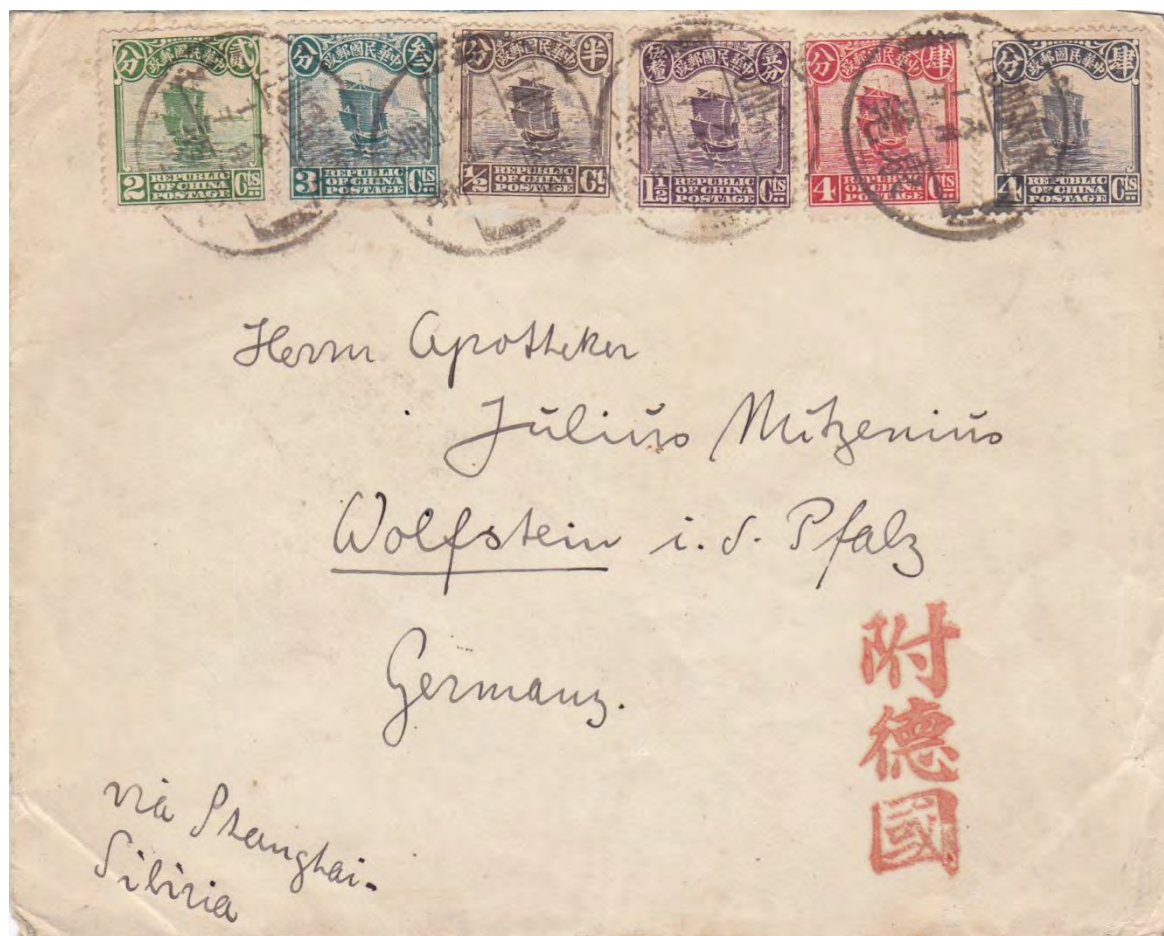 分 中華民國郵政 貳
2 REPUBLIC OF CHINA POSTAGE Cts
分 中華民國郵政 叁
3 REPUBLIC OF CHINA POSTAGE Cts
分 中華民國郵政 半
1/2 REPUBLIC OF CHINA POSTAGE Ct
中華民國郵政 壹分
1 1/2 REPUBLIC OF CHINA POSTAGE Cts
分 中華民國郵政 肆
4 REPUBLIC OF CHINA POSTAGE
分 中華民國郵政 肆
4 REPUBLIC OF CHINA POSTAGE Cts
Herrn Apotheker
Julius Mitzenius
Wolfstein i. d. Pfalz
Germany.
附德國
via Shanghai-
Sibiria